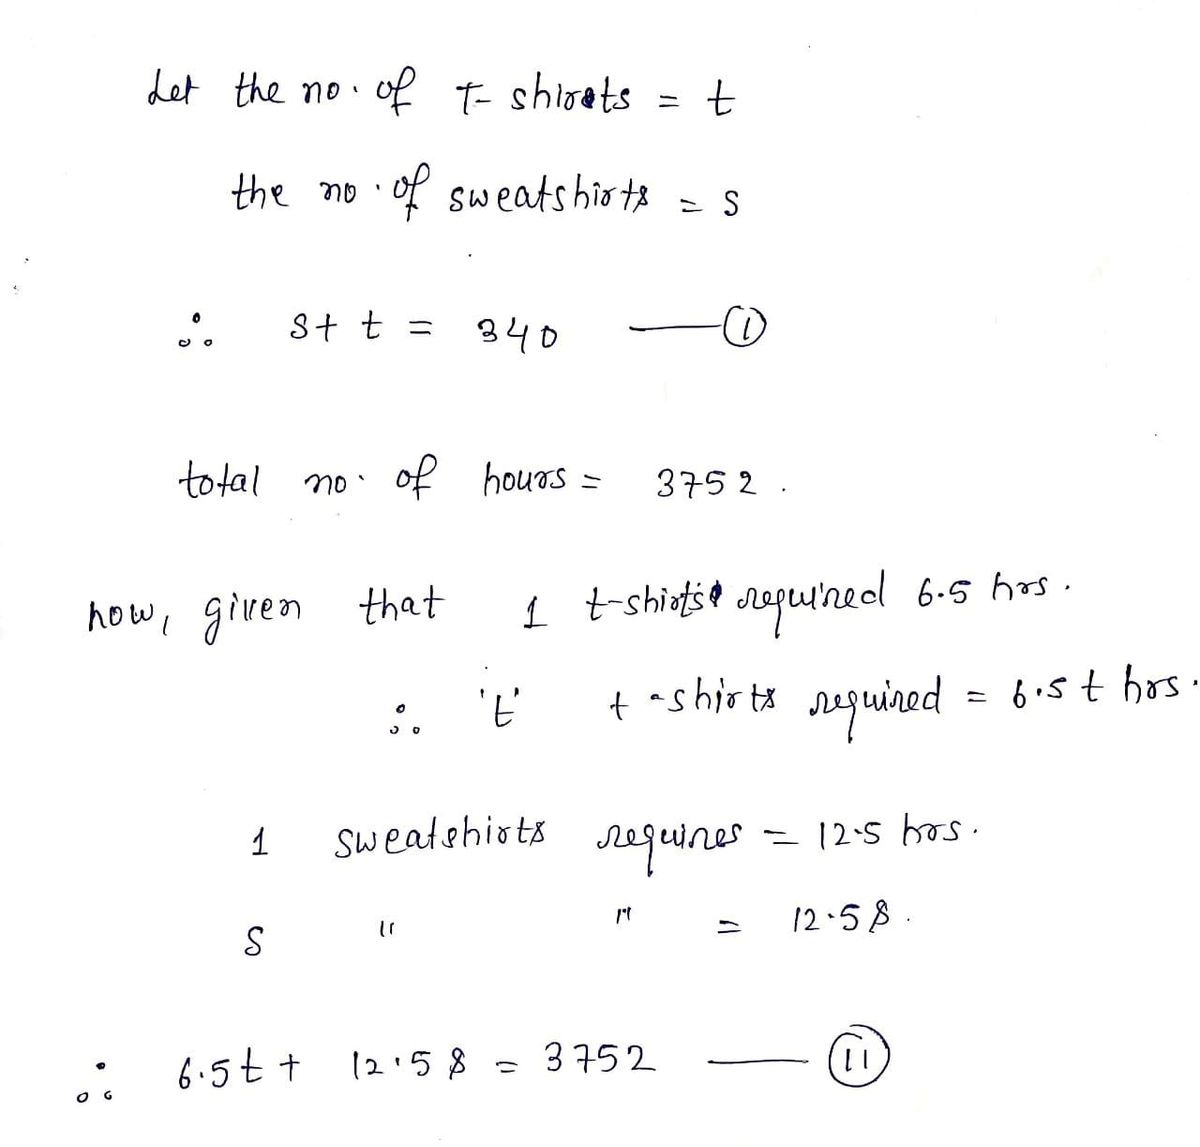 Let the no. of T-shirts = t
the no. of sweatshirts = s
∴ s + t = 340 —— (I)
total no. of hours = 3752.
now, given that 1 t-shirts required 6.5 hrs.
∴ 't' t-shirts required = 6.5 t hrs.
1 sweatshirts requires = 12.5 hrs.
S " " = 12.5 s.
∴ 6.5t + 12.5 s = 3752 —— (II)